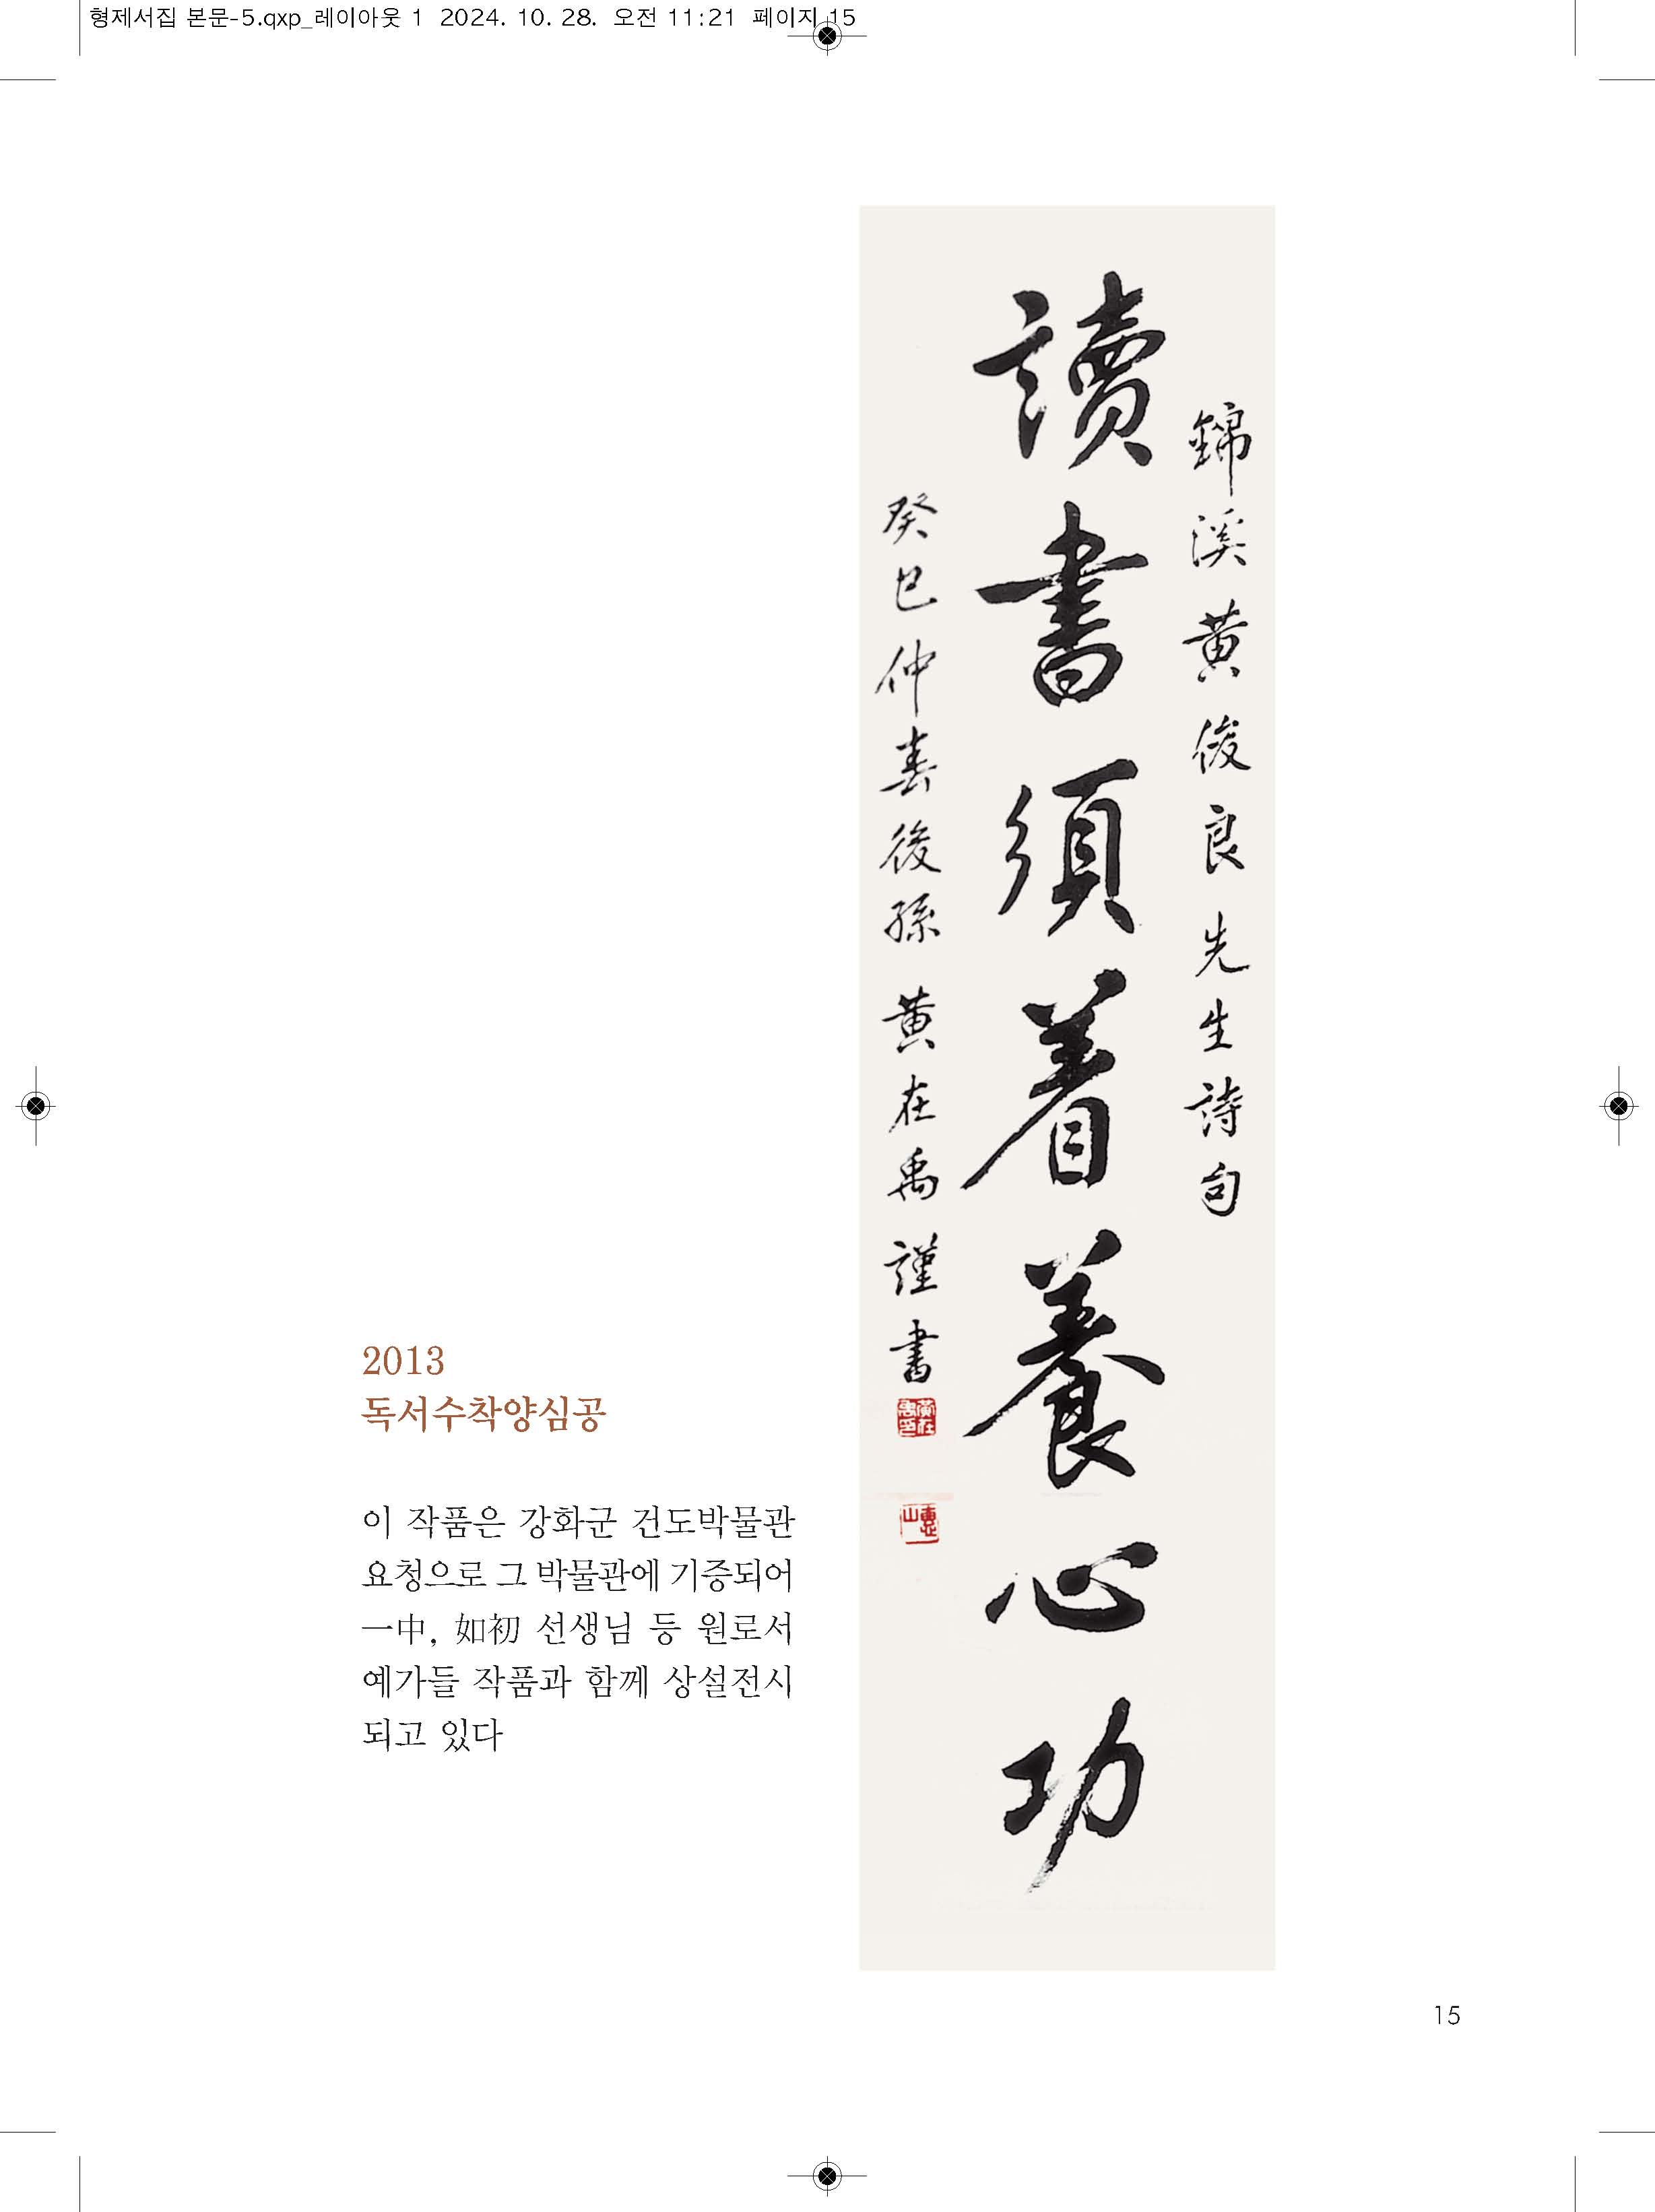 형제서집 본문-5.qxp_레이아웃 1 2024. 10. 28. 오전 11:21 페이지 15
錦溪黄俊良先生詩句
讀書須着養心功
癸巳仲春後孫 黄在禹謹書
2013
독서수착양심공
이 작품은 강화군 건도박물관
요청으로 그 박물관에 기증되어
一中, 如初 선생님 등 원로서
예가들 작품과 함께 상설전시
되고 있다
15